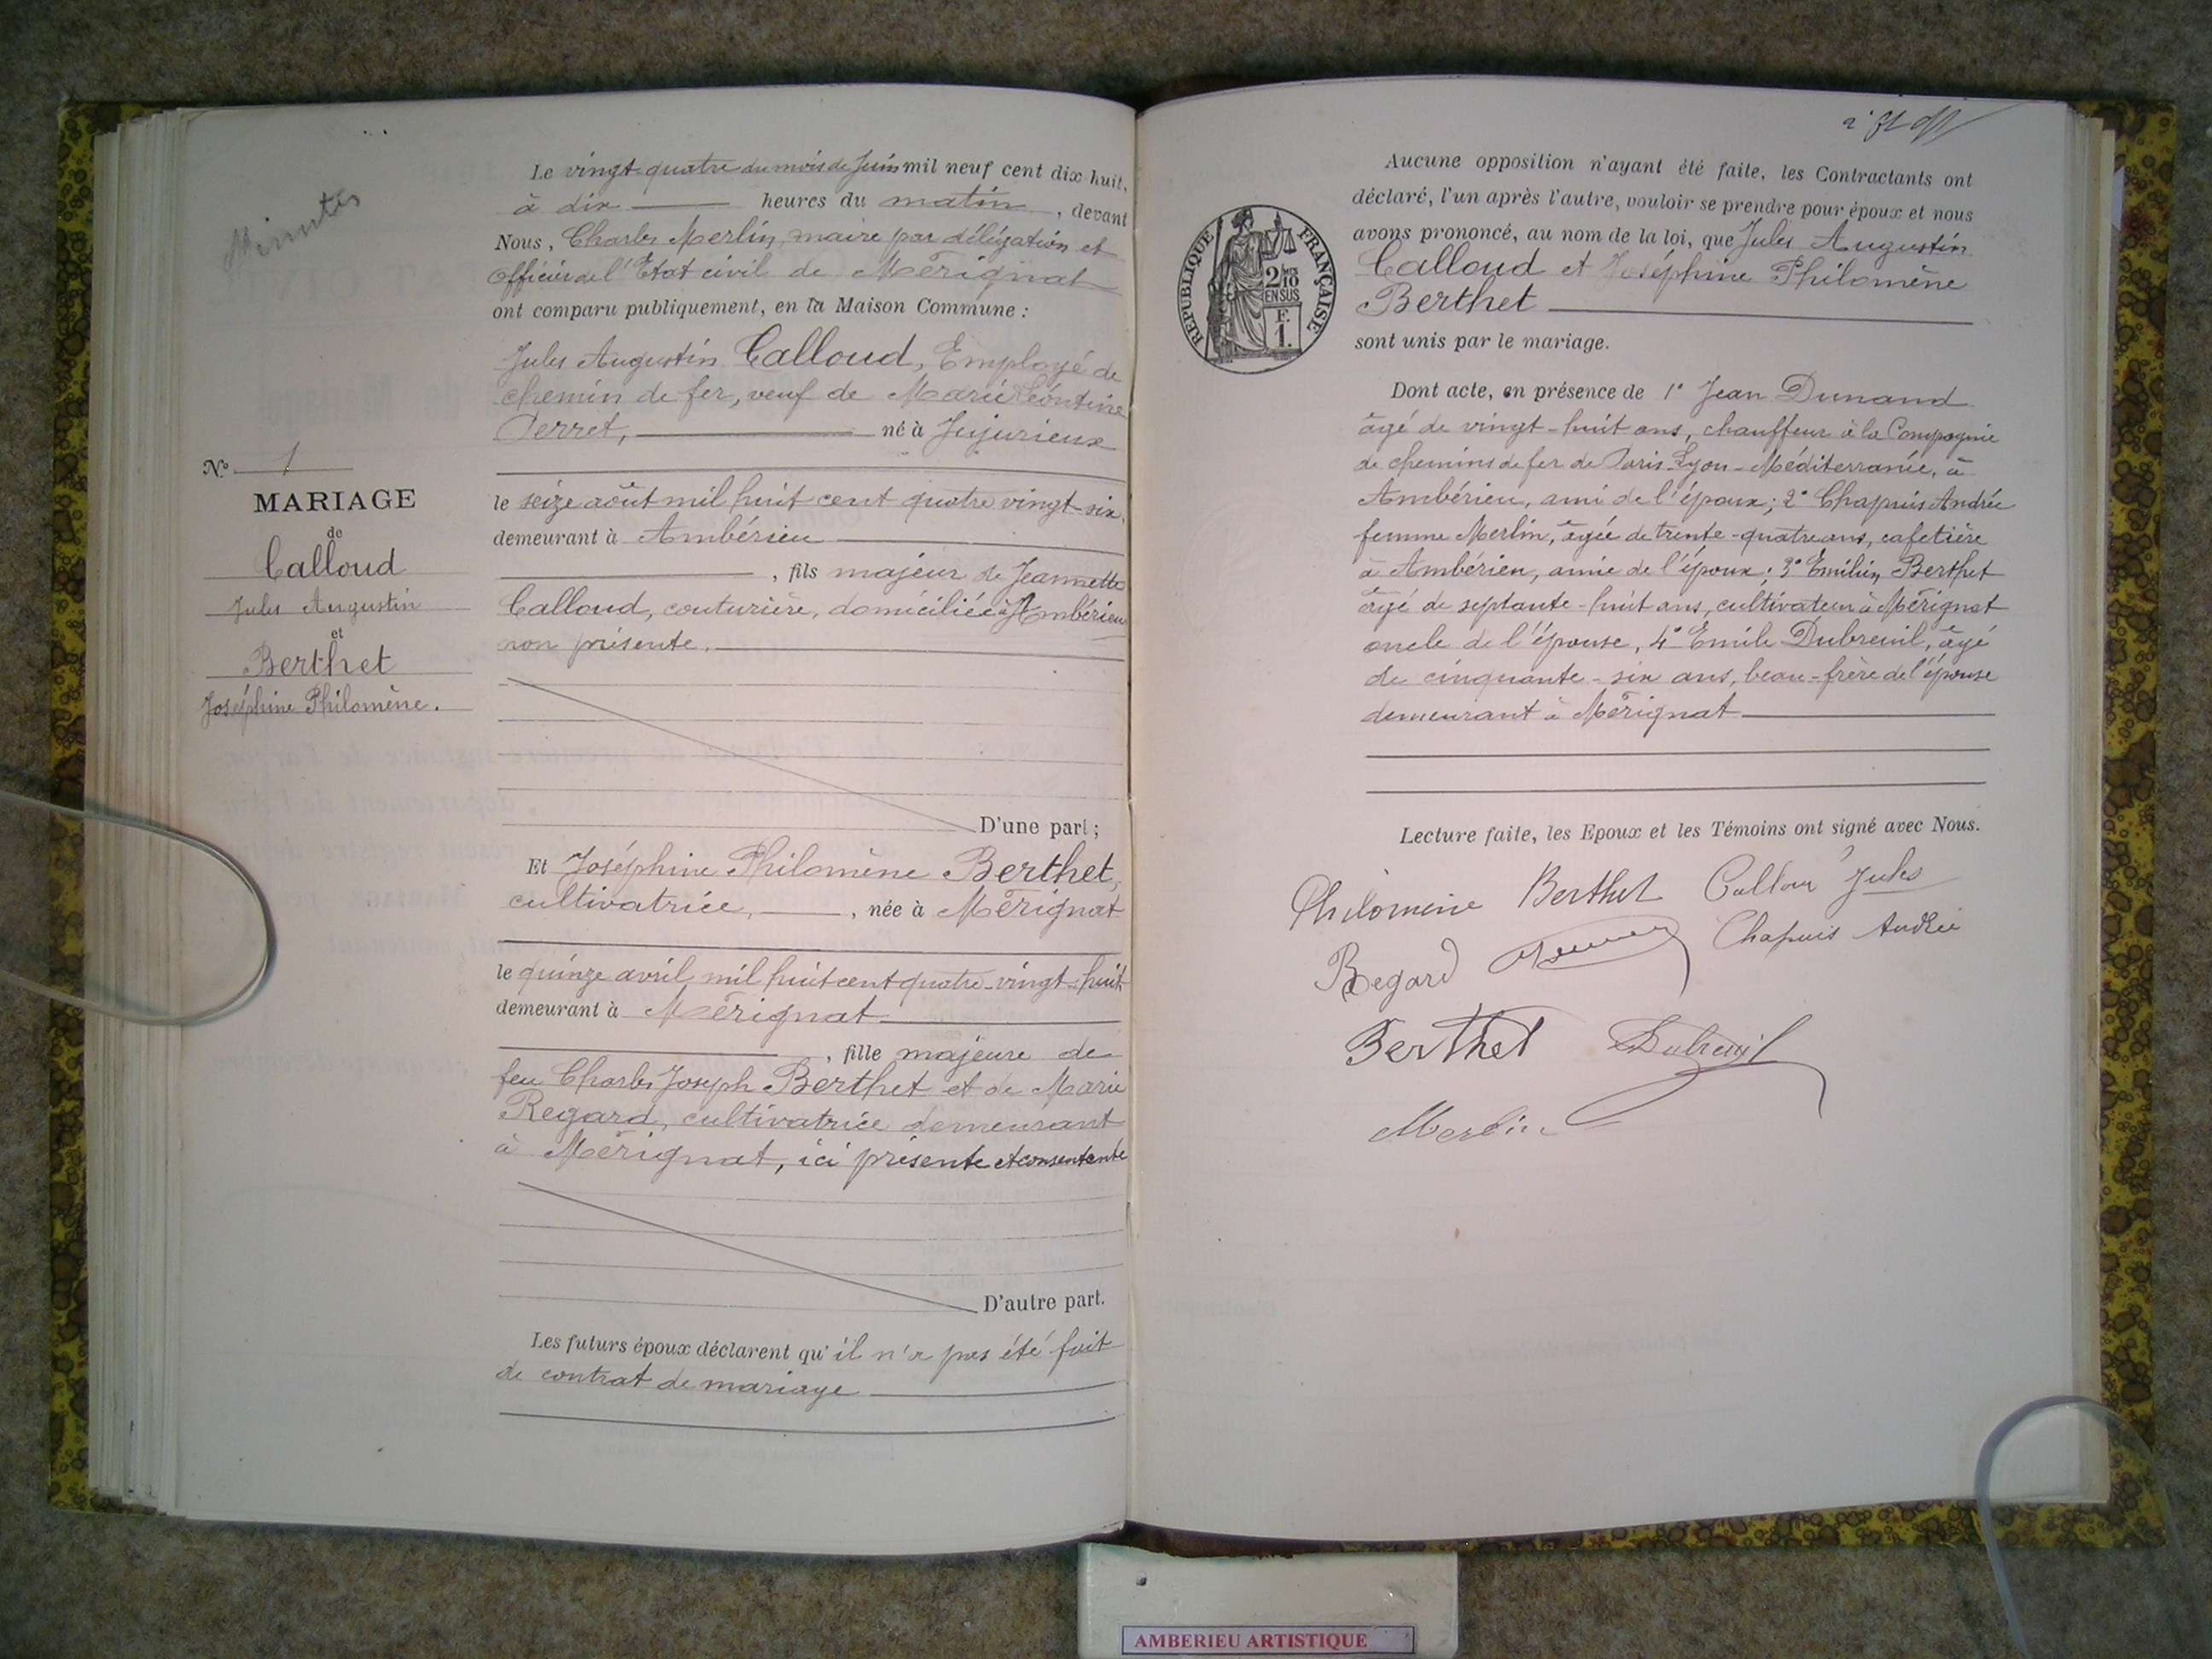 Minutes
N° 1
MARIAGE
de
Calloud
Jules Augustin
et
Berthet
Joséphine Philomène.
Le vingt-quatre du mois de Juin mil neuf cent dix huit,
à dix heures du matin, devant
Nous, Charles Merlin, maire par délégation et
Officier de l'Etat civil de Mérignat
ont comparu publiquement, en la Maison Commune :
Jules Augustin Calloud, Employé de
chemin de fer, veuf de Marie Léontine
Perret, né à Jujurieux
le seize août mil huit cent quatre vingt-six,
demeurant à Ambérieu
, fils majeur de Jeannette
Calloud, couturière, domiciliée à Ambérieu
non présente.
D'une part ;
Et Joséphine Philomène Berthet,
cultivatrice, , née à Mérignat
le quinze avril mil huit cent quatre-vingt-huit
demeurant à Mérignat
, fille majeure de
feu Charles Joseph Berthet et de Marie
Regard, cultivatrice demeurant
à Mérignat, ici présente et consentante
D'autre part.
Les futurs époux déclarent qu'il n'a pas été fait
de contrat de mariage
REPUBLIQUE FRANÇAISE
2/10
EN SUS
F.
1.
Aucune opposition n'ayant été faite, les Contractants ont
déclaré, l'un après l'autre, vouloir se prendre pour époux et nous
avons prononcé, au nom de la loi, que Jules Augustin
Calloud et Joséphine Philomène
Berthet
sont unis par le mariage.
Dont acte, en présence de 1° Jean Dunand
âgé de vingt-huit ans, chauffeur à la Compagnie
de chemins de fer de Paris-Lyon-Méditerranée, à
Ambérieu, ami de l'époux ; 2° Chapuis Andrée
femme Merlin, âgée de trente-quatre ans, cafetière
à Ambérieu, amie de l'époux ; 3° Emilien Berthet
âgé de septante-huit ans, cultivateur à Mérignat
oncle de l'épouse, 4° Emile Dubreuil, âgé
de cinquante-six ans, beau-frère de l'épouse
demeurant à Mérignat
Lecture faite, les Epoux et les Témoins ont signé avec Nous.
Philomène Berthet Jules
Regard Chapuis Andrée
Berthet Dubreuil
Merlin
AMBERIEU ARTISTIQUE